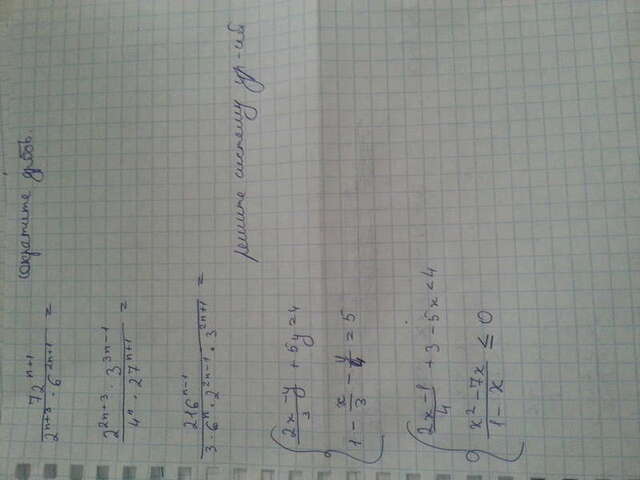 сократите дробь
72^{n+1} / (2^{n+3} · 6^{2n+1}) =
(2^{2n+3} · 3^{3n-1}) / (4^n · 27^{n+1}) =
216^{n-1} / (3 · 6^n · 2^{2n-1} · 3^{2n+1}) =
решите систему ур-ий
{ (2x - y) / 3 + 5y = 4
1 - x/3 - y/4 = 5
{ (2x - 1) / 4 + 3 - 5x < 4
(x² - 7x) / (1 - x) ≤ 0